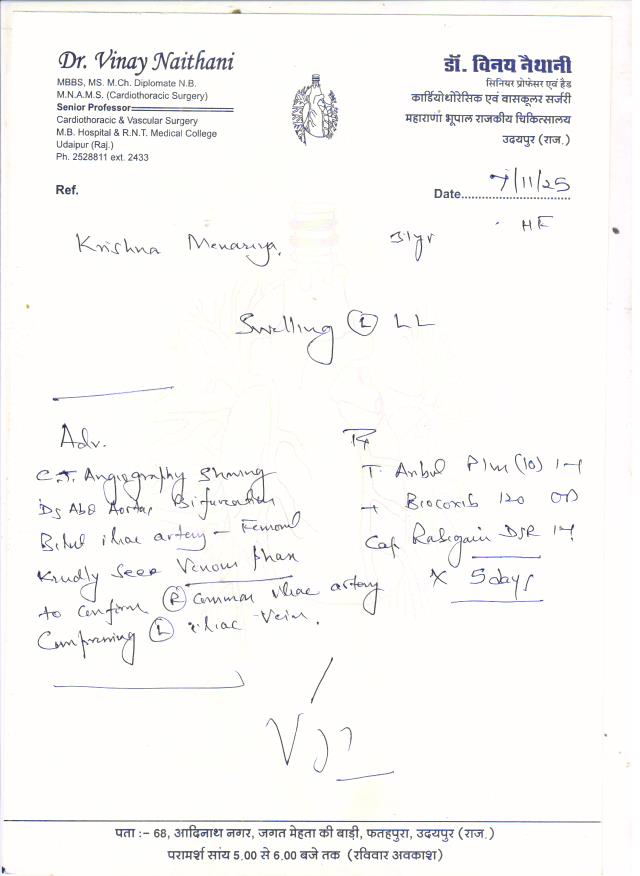 Dr. Vinay Naithani
MBBS, MS. M.Ch. Diplomate N.B.
M.N.A.M.S. (Cardiothoracic Surgery)
Senior Professor
Cardiothoracic & Vascular Surgery
M.B. Hospital & R.N.T. Medical College
Udaipur (Raj.)
Ph. 2528811 ext. 2433
डॉ. विनय नैथानी
सिनियर प्रोफेसर एवं हैड
कार्डियोथोरेसिक एवं वासकूलर सर्जरी
महाराणा भूपाल राजकीय चिकित्सालय
उदयपुर (राज.)
Ref.
Date 7/11/25
Krishna Menariya. 31yr
Swelling (L) LL
Adv.
C.T. Angiography Showing
Abd Aorta, Bifurcation
iliac artery - Femoral
Kindly see Venous phase
to confirm (R) common iliac artery
Compressing (L) iliac vein.
Rx
T. Plus (10) 1-1
120 OD
Cap DSR 1-1
x 5 days
पता :– 68, आदिनाथ नगर, जगत मेहता की बाड़ी, फतहपुरा, उदयपुर (राज.)
परामर्श सांय 5.00 से 6.00 बजे तक (रविवार अवकाश)